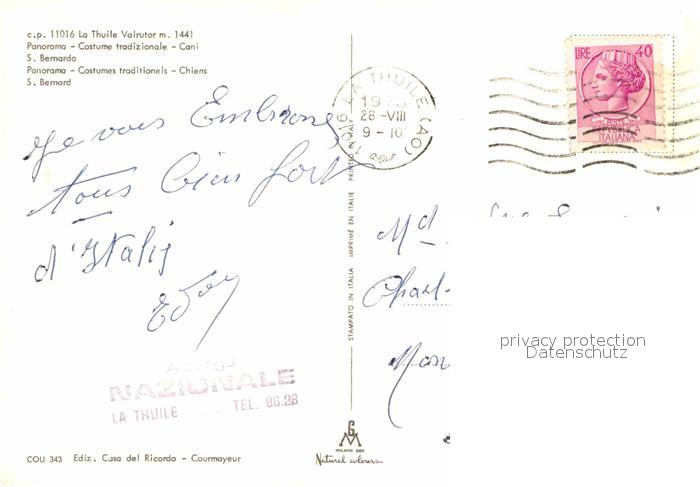 c.p. 11016 La Thuile Valrutor m. 1441
Panorama - Costume tradizionale - Cani
S. Bernardo
Panorama - Costumes traditionels - Chiens
S. Bernard
Je vous Embrasse
tous bien fort
d'Italie
NAZIONALE
LA THUILE TEL. 86.28
COU 343 Ediz. Casa del Ricordo - Courmayeur
STAMPATO IN ITALIA IMPRIMÉ EN ITALIE PRINTED IN ITALY
GM
MILANO DEP.
Natural colours
LA THUILE (AO)
28-VIII
9-10
LIRE 40
REPVBBLICA
ITALIANA
Md
privacy protection
Datenschutz